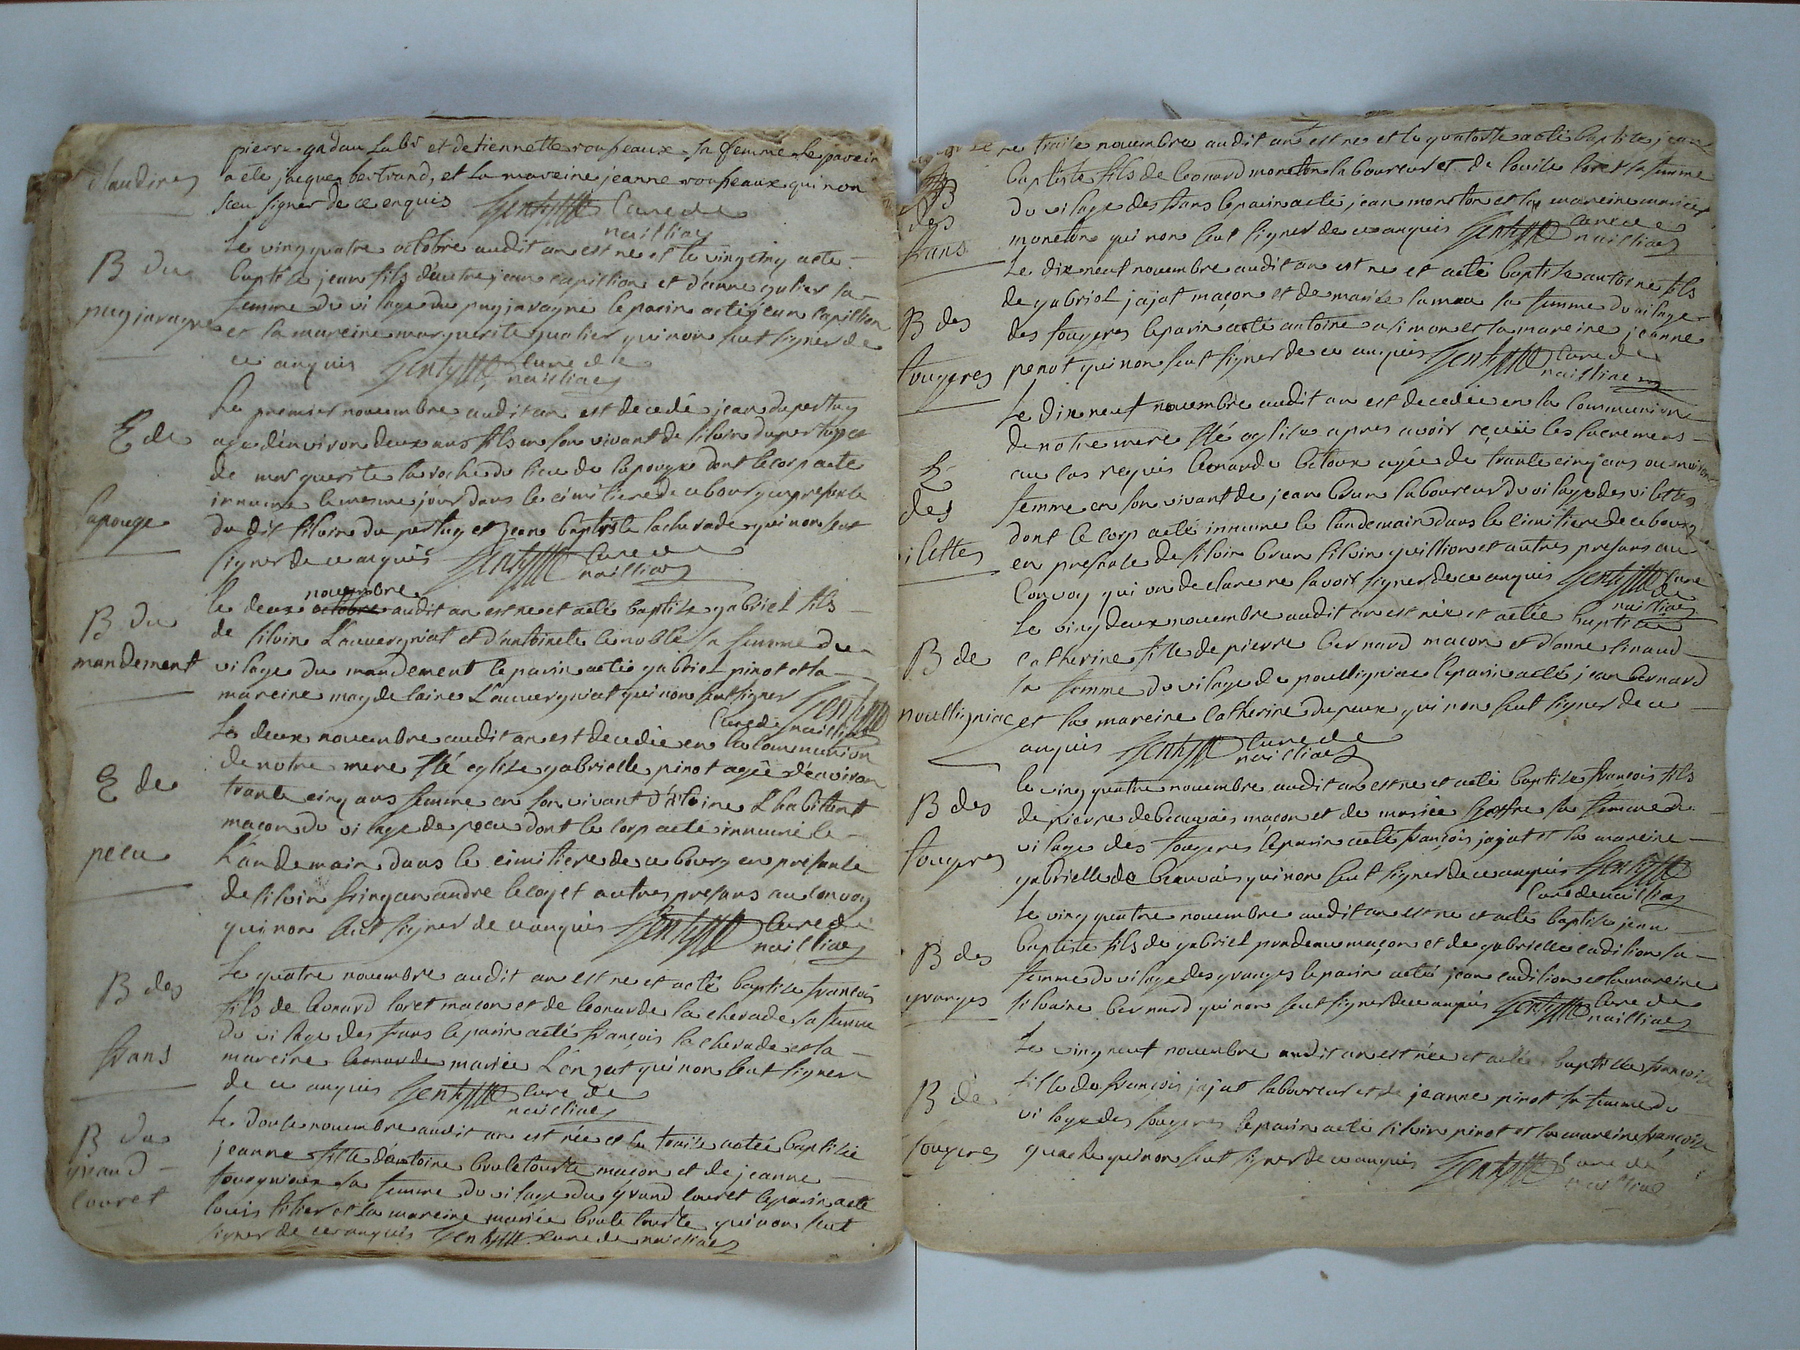 pierre gadau labr et detiennette roupeaux sa femme le parein
a ete jacques bertrand, et la mareine jeanne roupeaux qui non
sceu signer de ce enquis curé de
naillac
B du
puyjavagne
Le vingquatre octobre audit an est ne et le vingcinq acte
baptise jean fils d'autre jean capillion et d'anne gulier sa
femme du vilage du puyjavagne le parin acté jean capillion
et la mareine marguerite gualier qui non seut signer de
ce anquis curé de
naillac
E de
lapouge
Le premier novembre audit an est decedé jean dupertuy
agé d'environ deux ans fils en son vivant de silvin dupertuy et
de marguerite laroche du lieu de lapouge dont le corp acté
innumé le mesme jour dans le cimitiere de ce bourg en presente
du dit silvin du pertuy et jean baptiste lacherade qui non seut
signer de ce anquis curé de
naillac
B du
mandement
novembre
le deux octobre audit an est ne et acté baptise gabriel fils
de silvin L'auvergniat et d'antoinette lenoble sa femme du
vilage du mandement le parin acté gabriel pinot et la
mareine magdelaine L'auvergniat qui non seut signer
curé de naillac
E de
peau
Le deux novembre audit an est decedée en la communion
de notre mere ste eglise gabrielle pinot agée d'environ
trante cinq ans femme en son vivant d'etoine L'habitant
maçon du vilage de peau dont le corp acté innumé le
L'andemain dans le cimitiere de ce bourg en presente
de silvin andre lecoq et autres presans au convoy
qui non seut signer de ce anquis curé de
naillac
B des
frans
Le quatre novembre audit an est ne et acté baptise françois
fils de leonard loret maçon et de leonarde lacherade sa femme
du vilage des frans le parin acté françois lacherade et la
mareine leonarde mariée L'anjat qui non seut signer
de ce anquis curé de
naillac
B du
grand
louret
Le douse novembre audit an est née et le treise actée baptisée
jeanne fille d'antoine bruletourte maçon et de jeanne
sa femme du vilage du grand louret le parin acté
louis filier et la mareine mariée brule tourte qui non seut
signer de ce anquis curé de naillac
B
des
frans
le traise novembre audit an est ne et le quatorse acté baptise jean
baptiste fils de leonard moneton laboureur et de louise loret sa femme
du vilage des frans le parin acté jean moneton et la mareine mariée
moneton qui non seut signer de ce anquis curé de
naillac
B des
fougeres
Le dix neuf novembre audit an est ne et acté baptise antoine fils
de gabriel jajat maçon et de mariée lamaa sa femme du vilage
des fougeres le parin acté antoine simon et la mareine jeanne
penot qui non seut signer de ce anquis curé de
naillac
E
des
ilettes
Le dix neuf novembre audit an est decedée en la communion
de notre mere ste eglise apres avoir reçeü les sacremens
au cas requis leonarde letoux agée de trante cinq ans ou environ
femme en son vivant de jean brun laboureur du vilage des vilettes
dont le corp acté innumé le landemain dans le cimitiere de ce bourg
en presente de silvin brun silvin guillion et autres presans au
convoy qui on declaré ne savoir signer de ce anquis curé
de
naillac
B de
poulligniac
Le vingdeux novembre audit an est née et actée baptisée
catherine fille de pierre bernard maçon et d'anne finaud
sa femme du vilage de poulligniac le parin acté jean bernard
et la mareine catherine dupeux qui non seut signer de ce
anquis curé de
naillac
B des
fougeres
le vingquatre novembre audit an est ne et acté baptise françois fils
de pierre debeauvais maçon et de mariée sa femme du
vilage des fougeres le parin acté françois jajat et la mareine
gabrielle de beauvais qui non seut signer de ce anquis
curé de naillac
B des
granges
Le vingquatre novembre audit an est ne et acté baptise jean
baptiste fils de gabriel pradeau maçon et de gabrielle cadilion sa
femme du vilage des granges le parin acté jean cadilion et la mareine
silvaine bernard qui non seut signer de ce anquis curé de
naillac
B de
fougeres
Le vingneuf novembre audit an est née et actée baptisée françoise
fille de françois jajat laboureur et de jeanne pinot sa femme du
vilage des fougeres le parin acté silvin pinot et la mareine françoise
qui non seut signer de ce anquis curé de
naillac